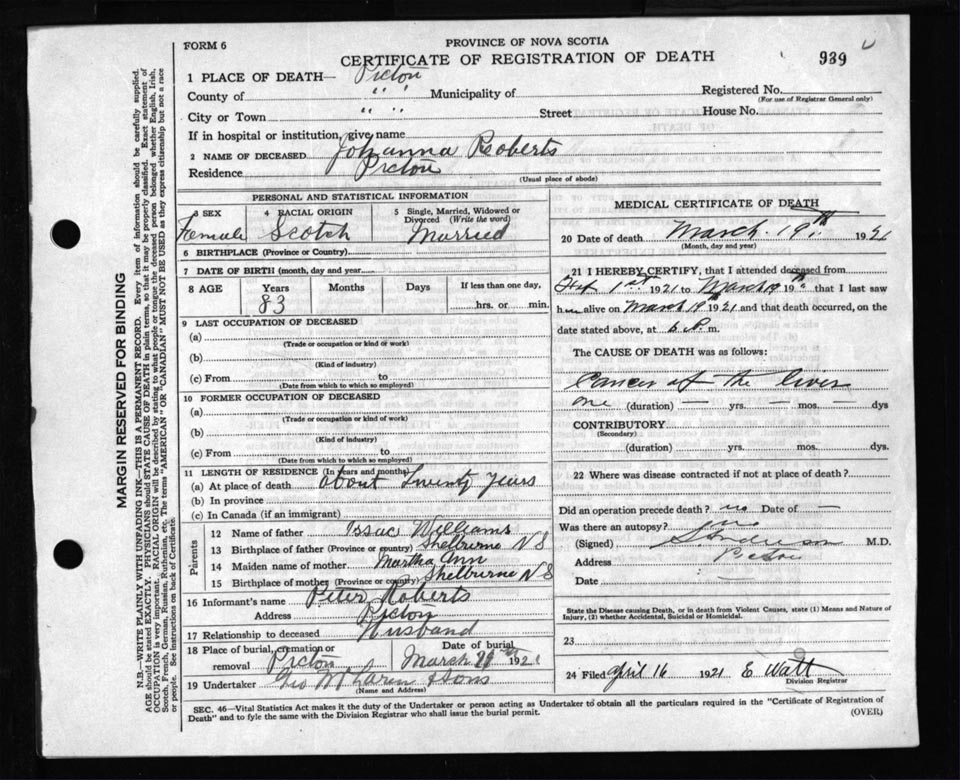 FORM 6
PROVINCE OF NOVA SCOTIA
CERTIFICATE OF REGISTRATION OF DEATH
939
1 PLACE OF DEATH— Pictou
County of " " Municipality of Registered No.
(For use of Registrar General only)
City or Town " " Street House No.
If in hospital or institution, give name
2 NAME OF DECEASED Johanna Roberts
Residence Pictou
(Usual place of abode)
PERSONAL AND STATISTICAL INFORMATION
3 SEX Female
4 RACIAL ORIGIN Scotch
5 Single, Married, Widowed or Divorced (Write the word) Married
6 BIRTHPLACE (Province or Country)
7 DATE OF BIRTH (month, day and year)
8 AGE Years Months Days If less than one day,
83 hrs. or min.
9 LAST OCCUPATION OF DECEASED
(a)
(Trade or occupation or kind of work)
(b)
(Kind of industry)
(c) From to
(Date from which to which so employed)
10 FORMER OCCUPATION OF DECEASED
(a)
(Trade or occupation or kind of work)
(b)
(Kind of industry)
(c) From to
(Date from which to which so employed)
11 LENGTH OF RESIDENCE (In years and months)
(a) At place of death about Twenty Years
(b) In province
(c) In Canada (if an immigrant)
Parents
12 Name of father Issac Williams
13 Birthplace of father (Province or country) Shelburne N S
14 Maiden name of mother Martha Ann
15 Birthplace of mother (Province or country) Shelburne N S
16 Informant's name Peter Roberts
Address Pictou
17 Relationship to deceased Husband
18 Place of burial, cremation or removal Pictou
Date of burial March 1921
19 Undertaker Geo McLaren & Sons
(Name and Address)
MEDICAL CERTIFICATE OF DEATH
20 Date of death March 19th 1921
(Month, day and year)
21 I HEREBY CERTIFY, that I attended deceased from
1st 1921 to March 19th that I last saw
her alive on March 19th 1921 and that death occurred, on the
date stated above, at 6 P. m.
The CAUSE OF DEATH was as follows:
Cancer of the liver
one (duration) — yrs. — mos. — dys
CONTRIBUTORY
(Secondary)
(duration) yrs. mos. dys
22 Where was disease contracted if not at place of death?
Did an operation precede death? no Date of —
Was there an autopsy? no
(Signed) M.D.
Address Pictou
Date
State the Disease causing Death, or in death from Violent Causes, state (1) Means and Nature of
Injury, (2) whether Accidental, Suicidal or Homicidal.
23
24 Filed April 16 1921 E Watt
Division Registrar
SEC. 46—Vital Statistics Act makes it the duty of the Undertaker or person acting as Undertaker to obtain all the particulars required in the "Certificate of Registration of
Death" and to fyle the same with the Division Registrar who shall issue the burial permit.
(OVER)
MARGIN RESERVED FOR BINDING
N.B.—WRITE PLAINLY WITH UNFADING INK—THIS IS A PERMANENT RECORD. Every item of information should be carefully supplied.
AGE should be stated EXACTLY. PHYSICIANS should STATE CAUSE OF DEATH in plain terms, so that it may be properly classified. Exact statement of
OCCUPATION is very important. RACIAL ORIGIN will be described by stating to what people or tongue the deceased person belonged whether English, Irish,
Scotch, French, German, Russian, Ruthenian, etc. The terms "AMERICAN" or "CANADIAN" MUST NOT BE USED as they express citizenship but not a race
or people. See instructions on back of Certificate.